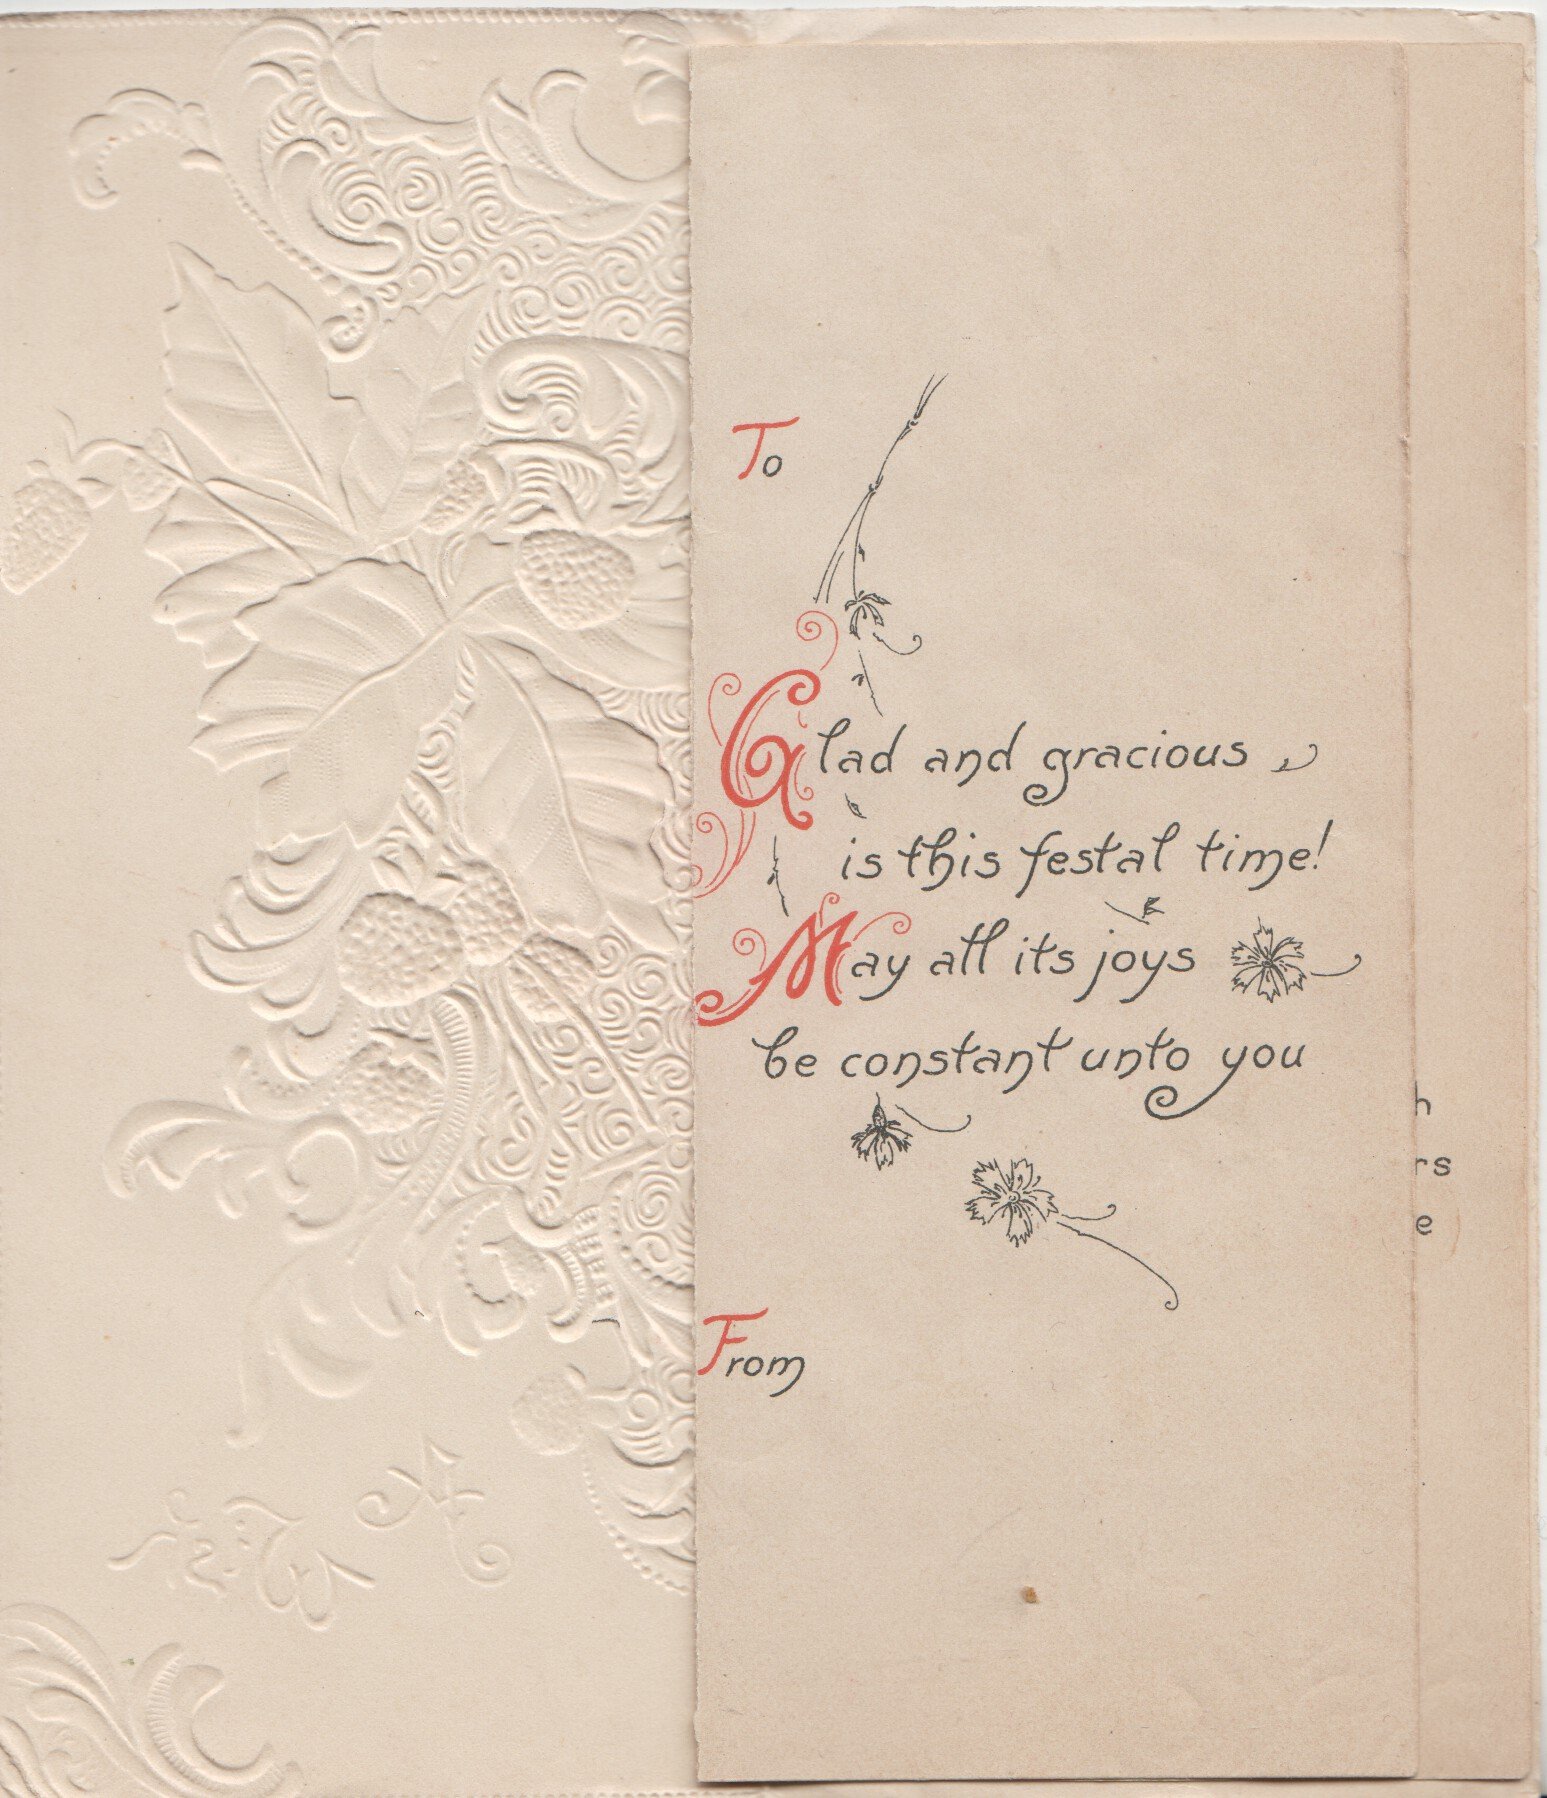 To
Glad and gracious
is this festal time!
May all its joys
be constant unto you
From
h
rs
e